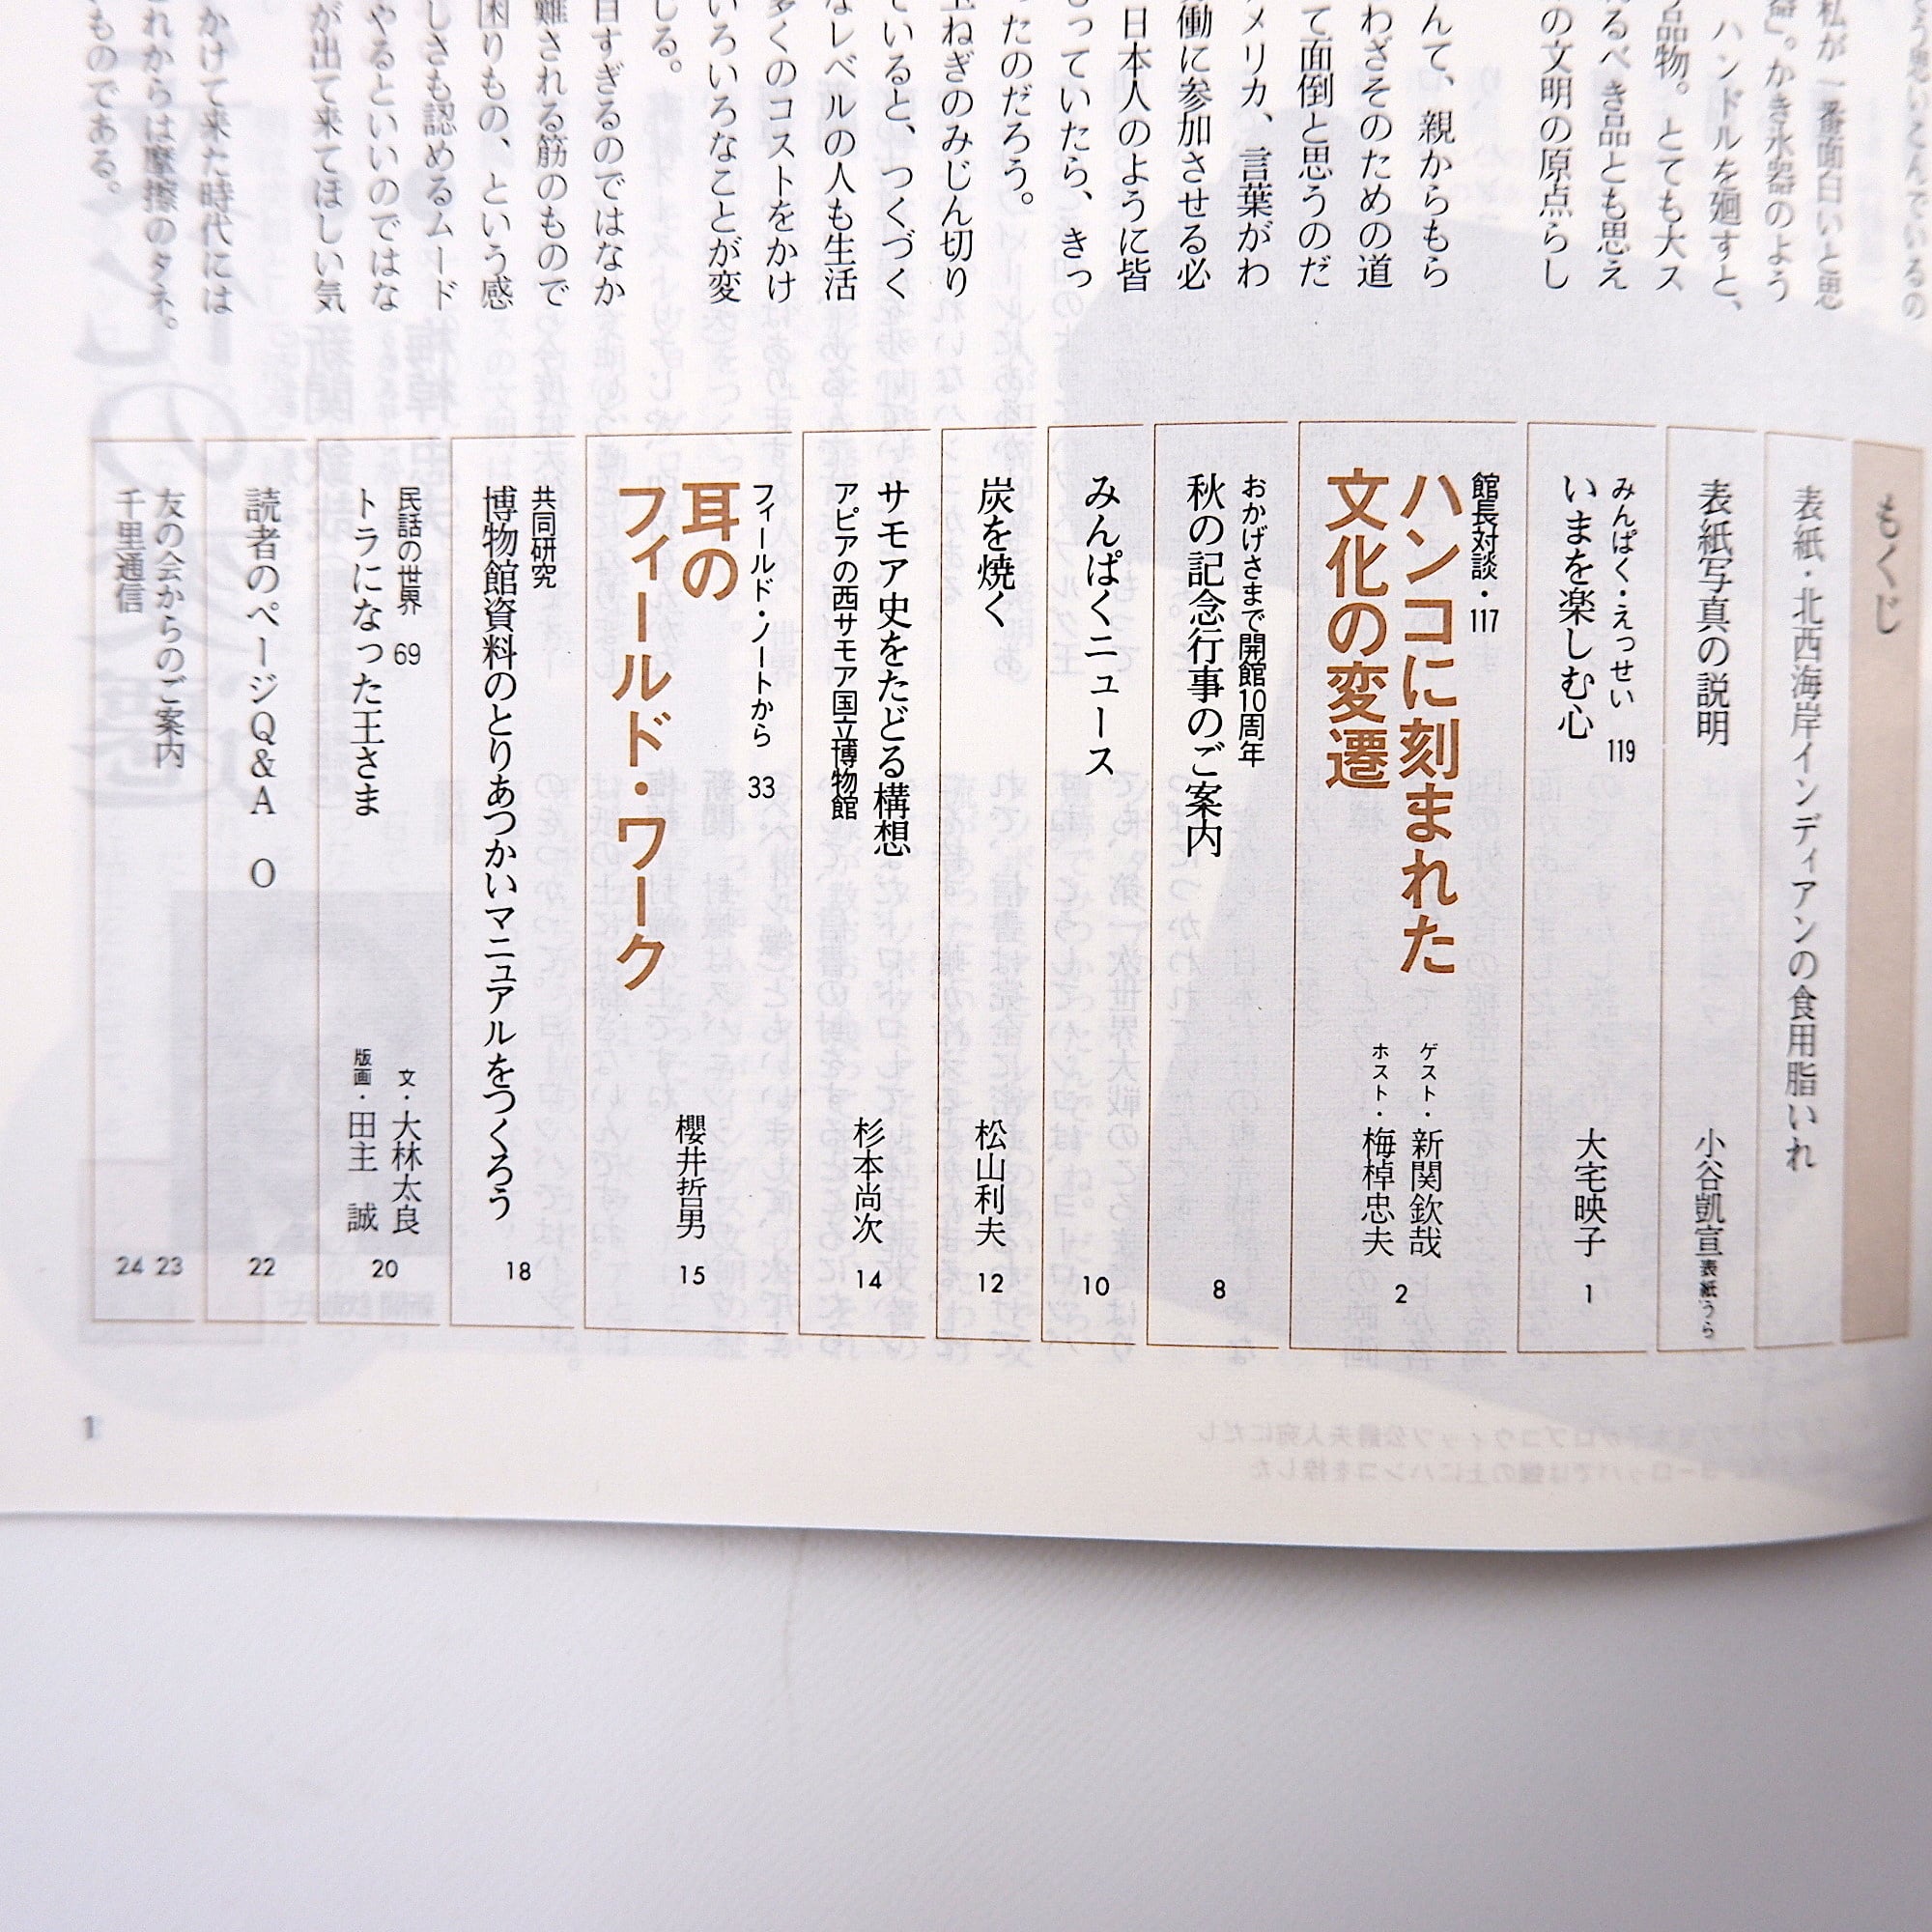 私が一番面白いと思
器」。かき氷器のよう
ハンドルを廻すと、
品物。とても大ス
るべき品とも思え
の文明の原点らし
んて、親からもら
わざそのための道
て面倒と思うのだ
メリカ、言葉がわ
働に参加させる必
日本人のように皆
っていたら、きっ
ったのだろう。
玉ねぎのみじん切り
ていると、つくづく
なレベルの人も生活
多くのコストをかけ
いろいろなことが変
しる。
目すぎるのではなか
難される筋のもので
困りもの、という感
しさも認めるムード
やるといいのではな
が出て来てほしい気
かけて来た時代には
これからは摩擦のタネ。
ものである。
もくじ
表紙・北西海岸インディアンの食用脂いれ
表紙写真の説明
小谷凱宣 表紙うら
みんぱく・えっせい 119
いまを楽しむ心
大宅映子
1
館長対談・117
ハンコに刻まれた
文化の変遷
ゲスト・新関欽哉
ホスト・梅棹忠夫
2
おかげさまで開館10周年
秋の記念行事のご案内
8
みんぱくニュース
10
炭を焼く
松山利夫
12
サモア史をたどる構想
アピアの西サモア国立博物館
杉本尚次
14
フィールド・ノートから 33
耳の
フィールド・ワーク
櫻井哲男
15
共同研究
博物館資料のとりあつかいマニュアルをつくろう
18
民話の世界 69
トラになった王さま
文・大林太良
版画・田主 誠
20
読者のページQ&A O
22
友の会からのご案内
23
千里通信
24
1